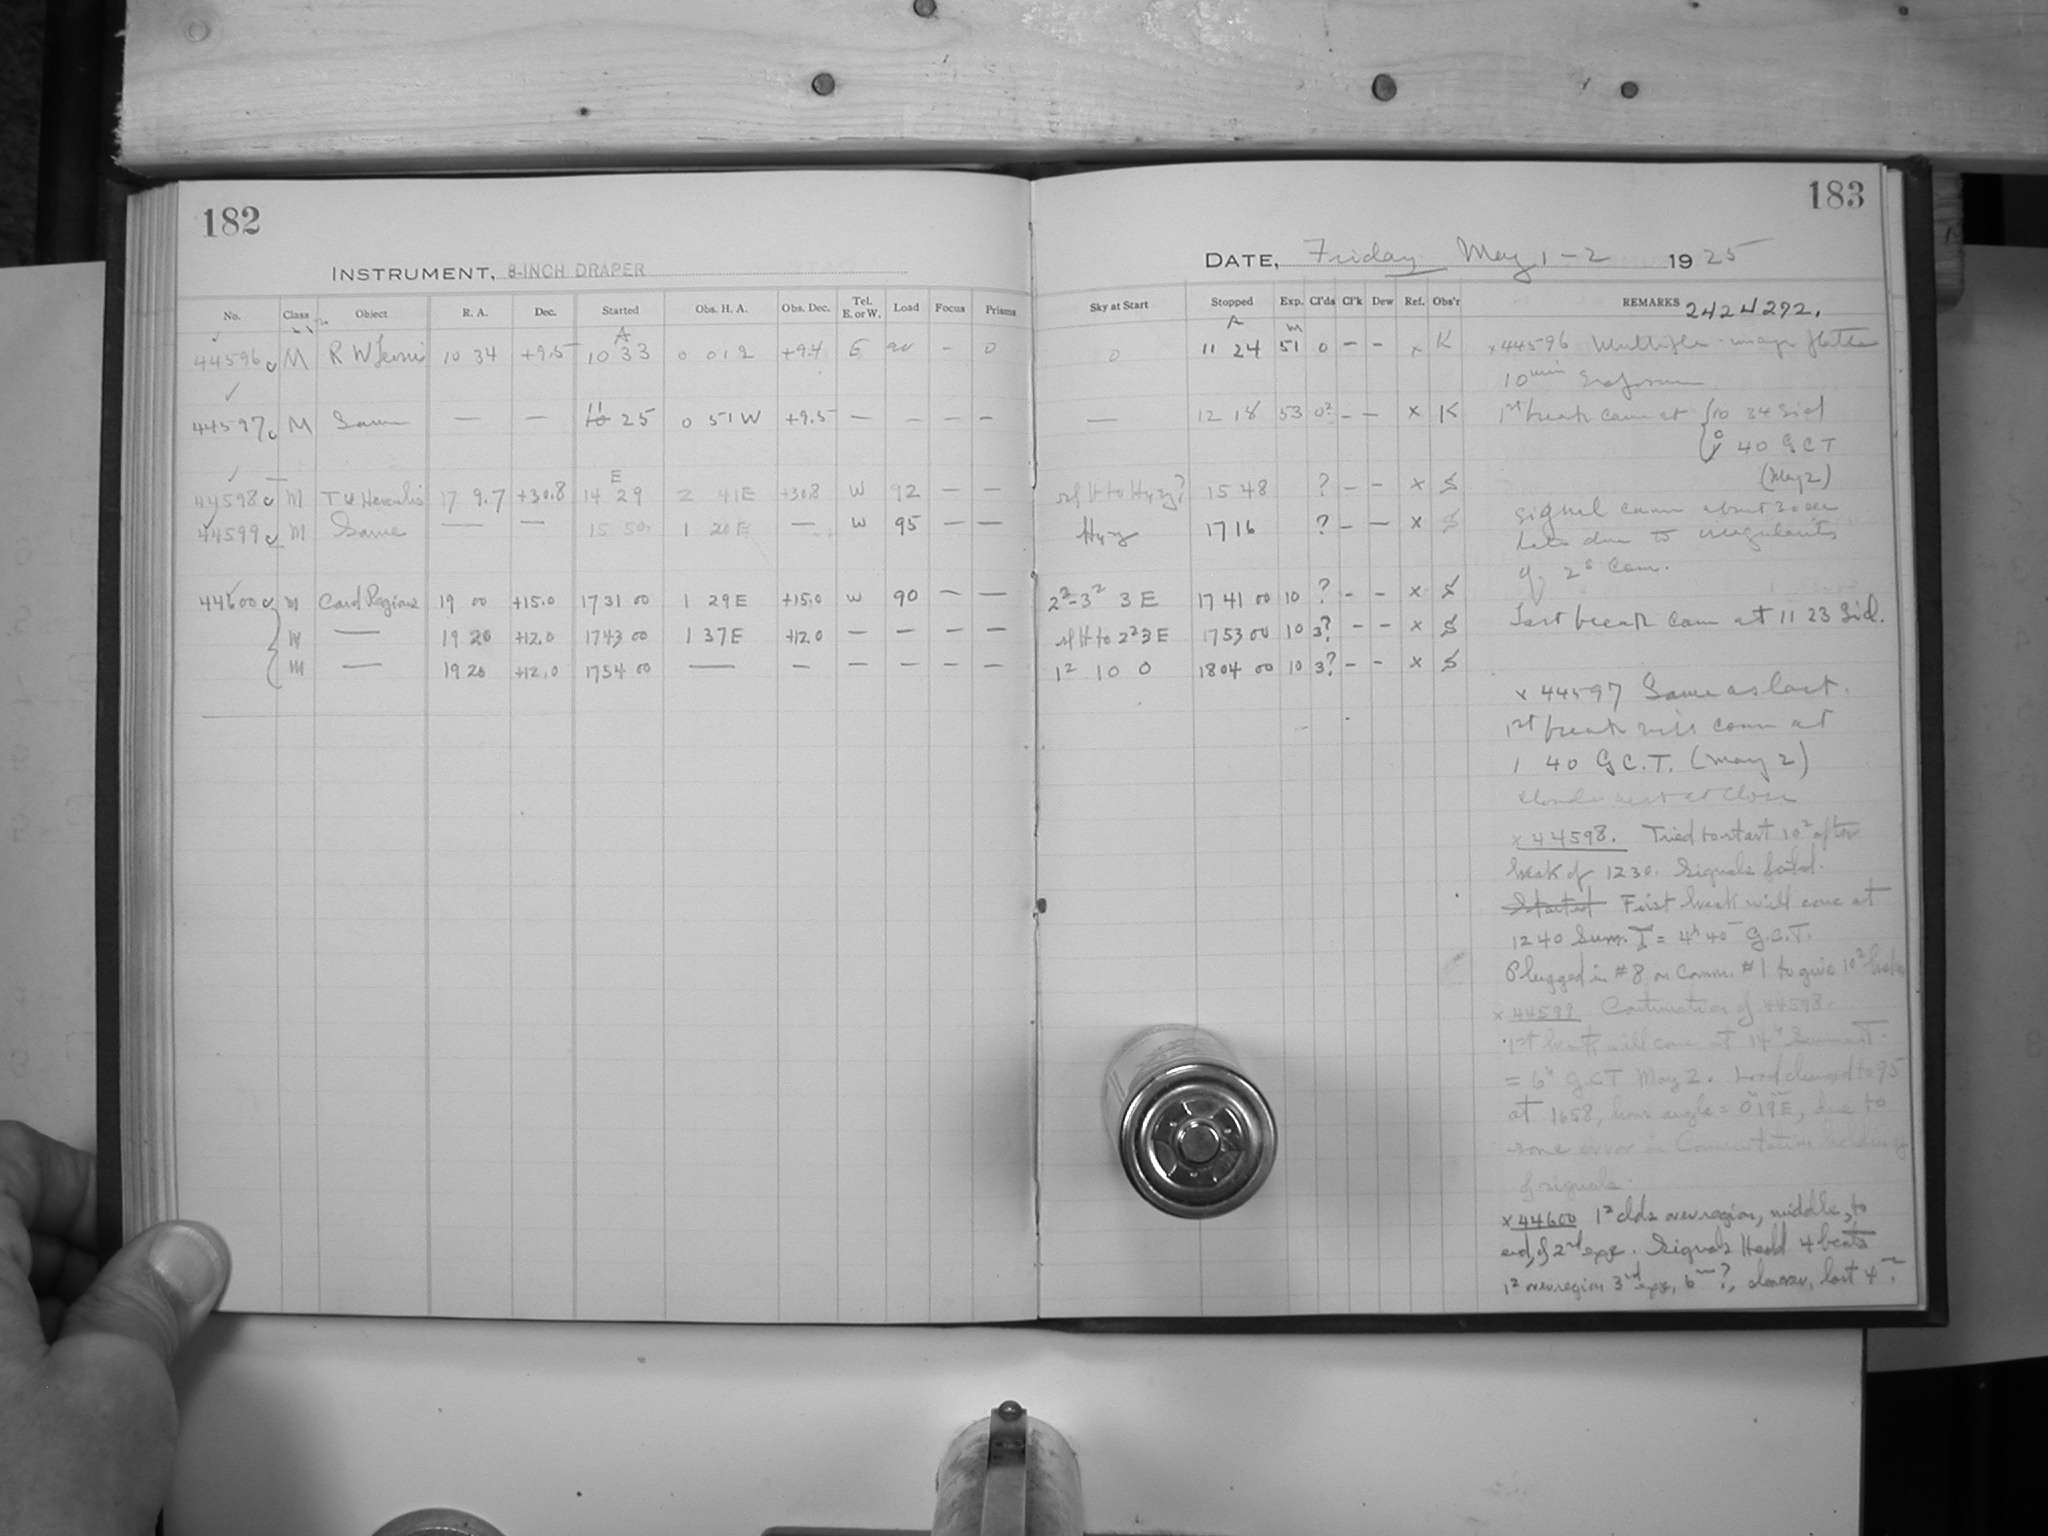 182
INSTRUMENT, 8-INCH DRAPER
No. Class Object R. A. Dec. Started Obs. H. A. Obs. Dec. Tel. E. or W. Load Focus Prisms
A
44596 M R W 10 34 +9.5 10 33 0 01 2 +9.4 E 90 - 0
44597 M Same — — 11 25 0 51 W +9.5 — — — —
E
44598 M T U Herculis 17 9.7 +30.8 14 29 2 41 E +30.8 W 92 — —
44599 M Same — — 15 50 1 20 E — W 95 — —
44600 M Card Regions 19 00 +15.0 17 31 00 1 29 E +15.0 W 90 — —
M — 19 20 +12.0 17 43 00 1 37 E +12.0 — — — —
M — 19 20 +12.0 17 54 00 — — — — — —
183
DATE, Friday May 1-2 1925
Sky at Start Stopped Exp. Cl'ds Cl'k Dew Ref. Obs'r REMARKS 2424272.
A m
0 11 24 51 0 – – x K
— 12 18 53 0² – — x K
Hazy? 15 48 ? – – x S
Hazy 17 16 ? – — x S
2²-3² 3 E 17 41 00 10 ? – – x S
to 2² 3 E 17 53 00 10 3? – – x S
1² 10 0 18 04 00 10 3? – – x S
x 44596 Multiple image plate
10 min exposures
1st break came at 10 34 Sid
0 40 G C T
(May 2)
Signal came about 30 sec
late due to irregularity
of 2s Com.
Last break came at 11 23 Sid.
x 44597 Same as last.
1st break will come at
1 40 G.C.T. (May 2)
Clouds west at close
x 44598. Tried to start 10² after
break of 1230. Signals failed.
Started First break will come at
12 40 Sum. T = 4h 40m G.C.T.
Plugged in #8 on Comm. #1 to give 10²
x 44599 Continuation of 44598.
1st break will come at 14h Summer T.
= 6h G.C.T. May 2. Load changed to 95
at 1658, hour angle = 0h 19m E, due to
some error in Commutation holding
of signals.
x 44600 1² clds over region, middle, to
end, of 2nd expr. Signals Head 4 beats
1² over region 3rd expr, 6m ?, clearer, last 4m.